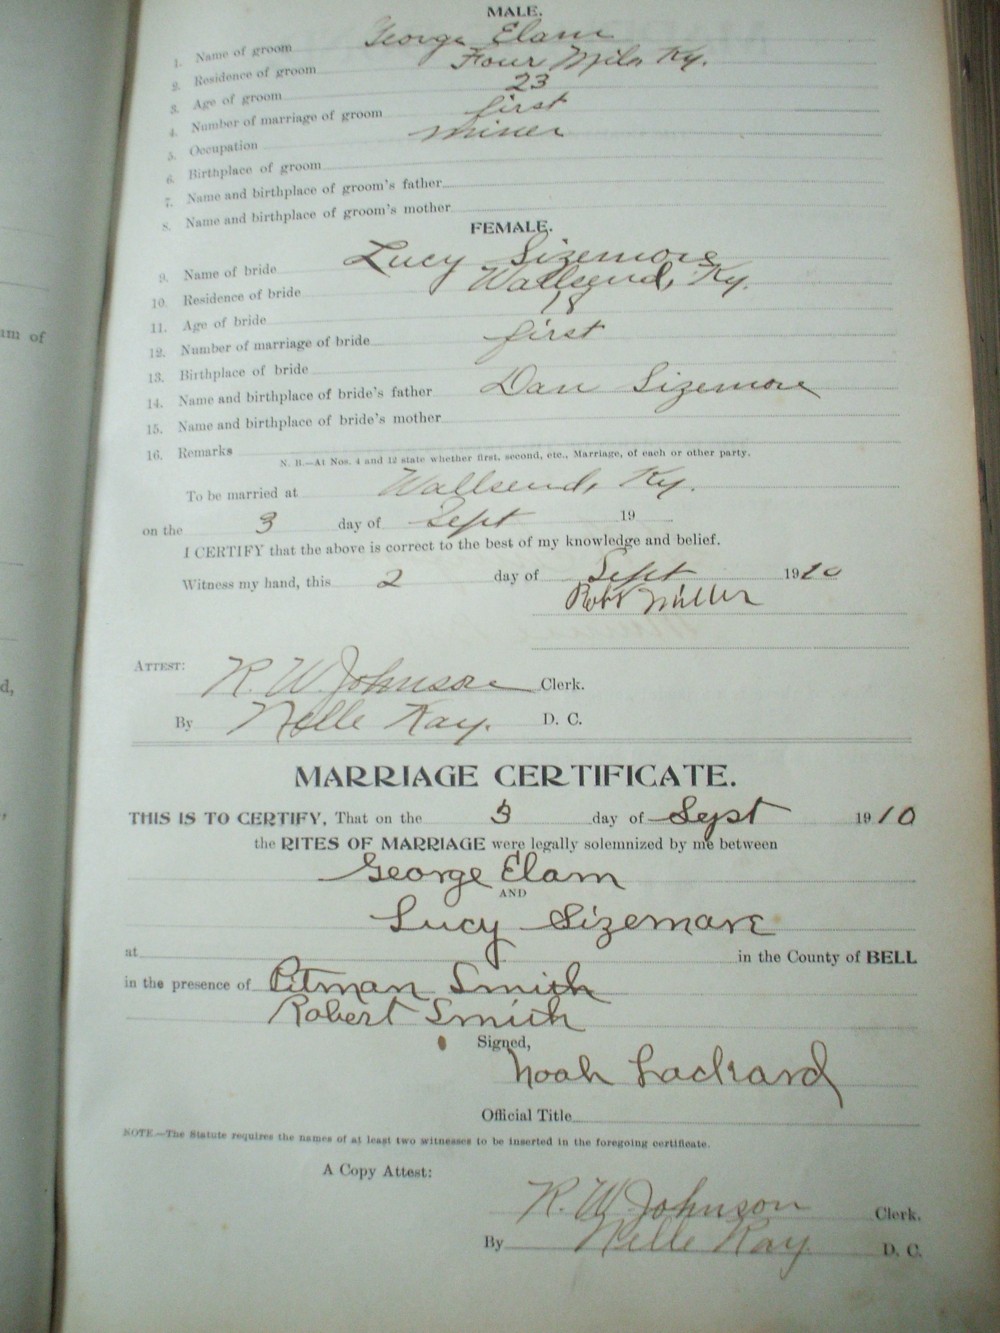 MALE.
1. Name of groom George Elam
2. Residence of groom Four Mile Ky.
3. Age of groom 23
4. Number of marriage of groom first
5. Occupation miner
6. Birthplace of groom
7. Name and birthplace of groom's father
8. Name and birthplace of groom's mother
FEMALE.
9. Name of bride Lucy Sizemore
10. Residence of bride Wallsend, Ky.
11. Age of bride 18
12. Number of marriage of bride first
13. Birthplace of bride
14. Name and birthplace of bride's father Dan Sizemore
15. Name and birthplace of bride's mother
16. Remarks
N. B.—At Nos. 4 and 12 state whether first, second, etc., Marriage, of each or other party.
To be married at Wallsend, Ky.
on the 3 day of Sept 19
I CERTIFY that the above is correct to the best of my knowledge and belief.
Witness my hand, this 2 day of Sept 1910
Robt Miller
ATTEST: R. W. Johnson Clerk.
By Nelle Kay. D. C.
MARRIAGE CERTIFICATE.
THIS IS TO CERTIFY, That on the 3 day of Sept 1910
the RITES OF MARRIAGE were legally solemnized by me between
George Elam
AND
Lucy Sizemore
at in the County of BELL
in the presence of Pitman Smith
Robert Smith
Signed,
Noah Lackard
Official Title
NOTE.—The Statute requires the names of at least two witnesses to be inserted in the foregoing certificate.
A Copy Attest:
R. W. Johnson Clerk.
By Nelle Kay. D. C.